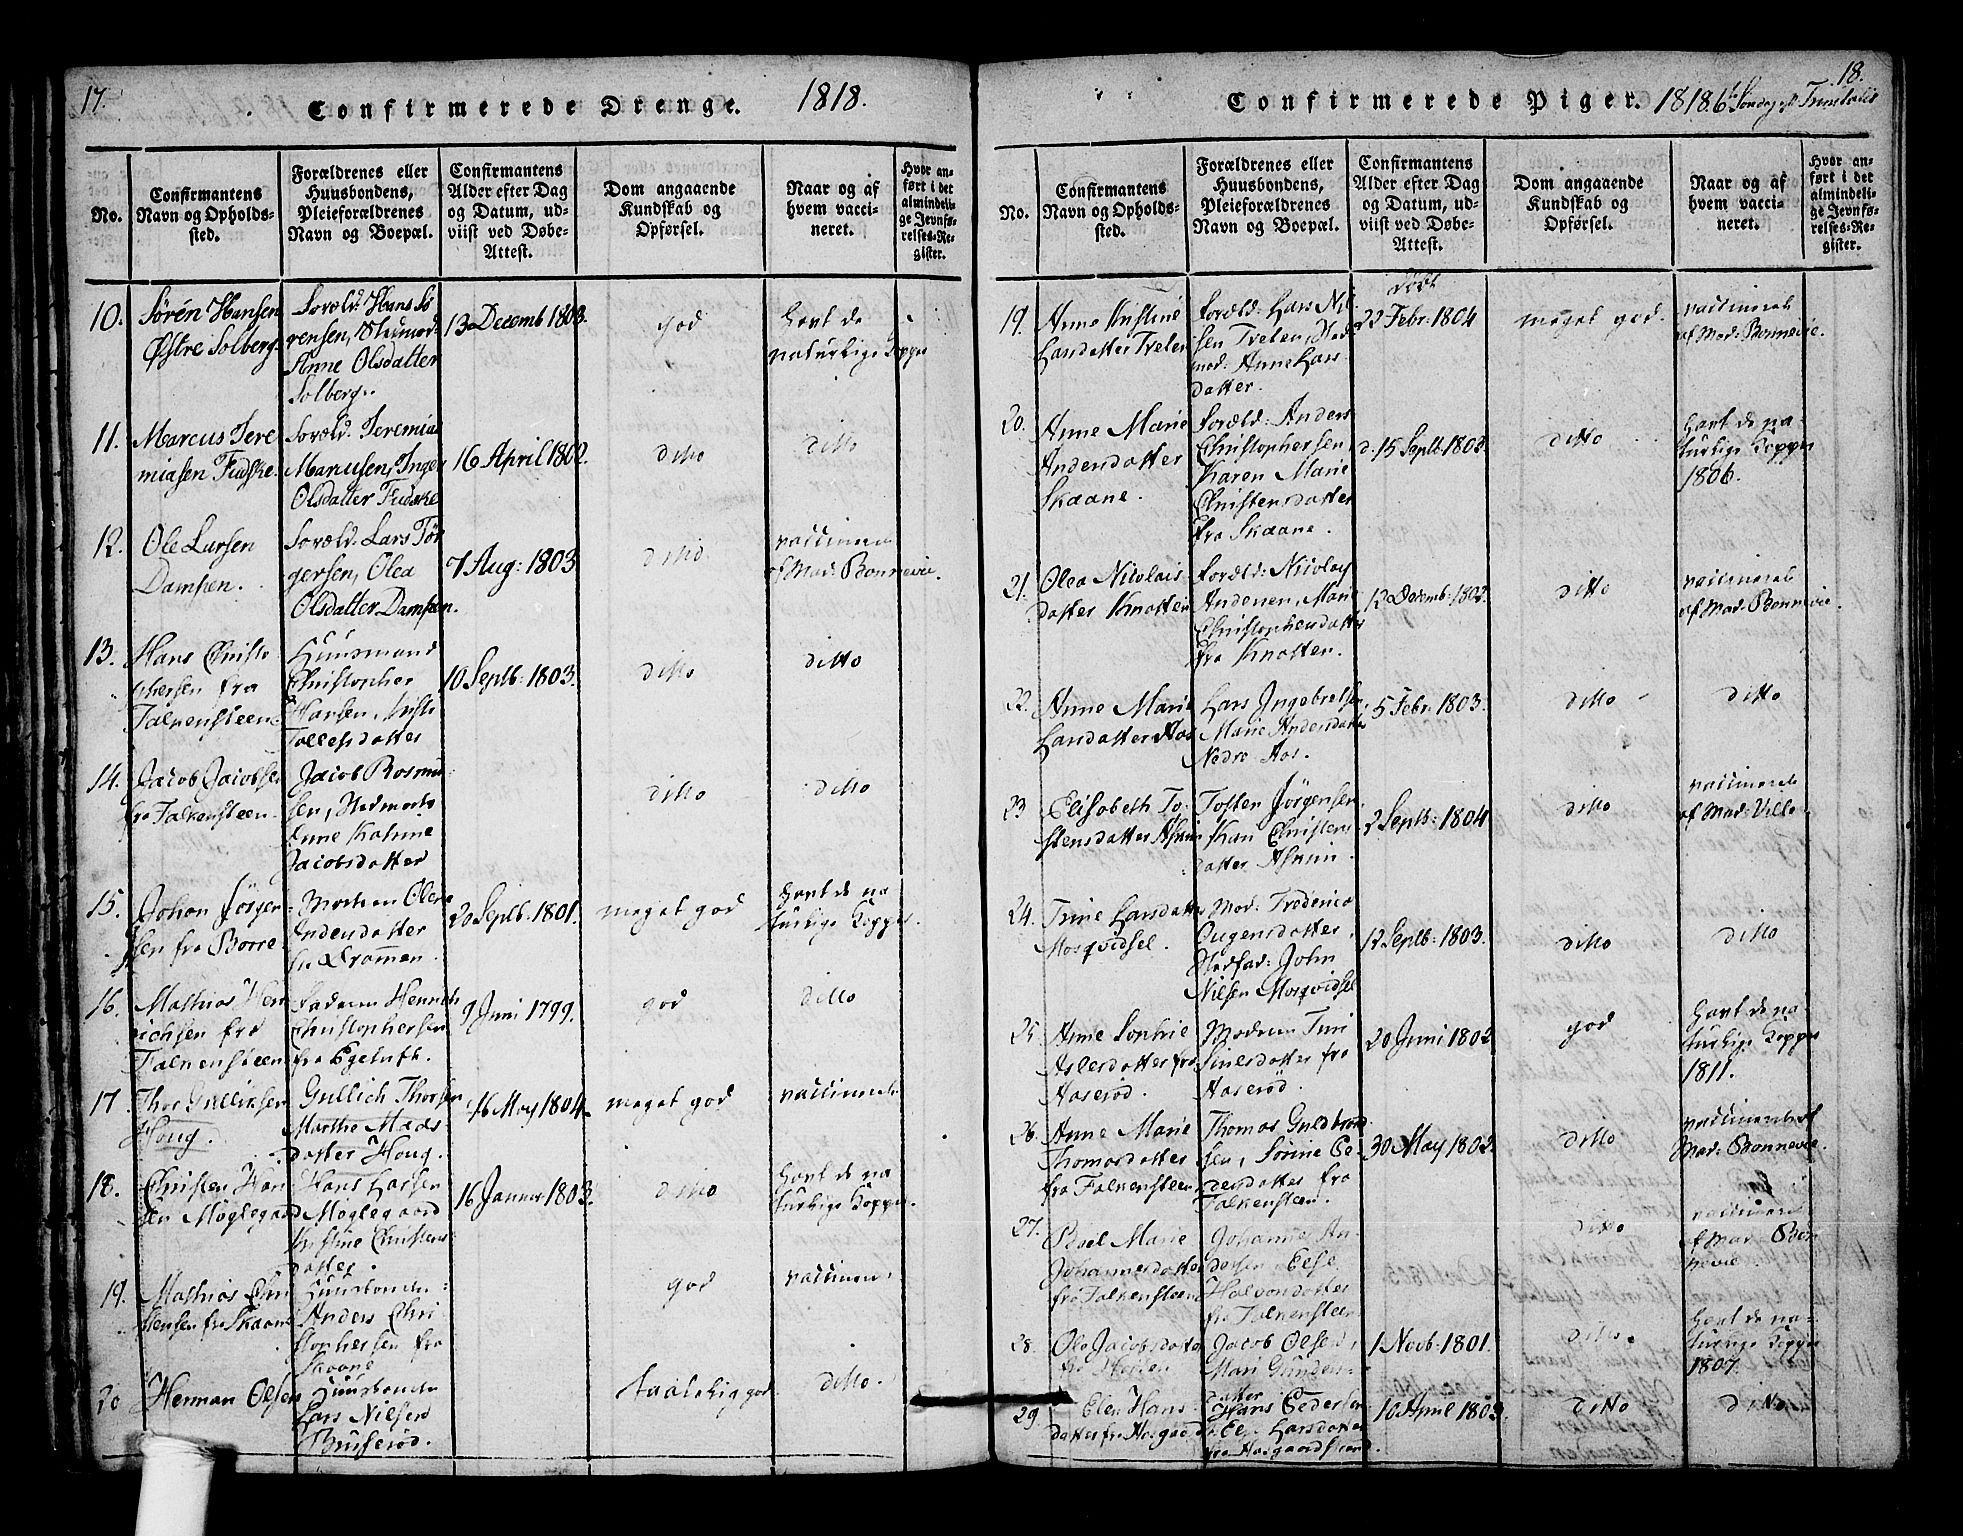 17.
Confirmerede Drenge.
1818.
No.
Confirmantens
Navn og Opholds-
sted.
Forældrenes eller
Huusbondens,
Pleieforældrenes
Navn og Boepæl.
Confirmantens
Alder efter Dag
og Datum, ud-
viist ved Døbe-
Attest.
Dom angaaende
Kundskab og
Opførsel.
Naar og af
hvem vacci-
neret.
Hvor an-
ført i det
almindeli-
ge Jevnfø-
relses-Re-
gister.
10.
Sören Hansen
Østre Solberg.
Foræld: Hans Sö
rensen,
Anne Olsdatter
Solberg.
13 Decemb 1803.
god
havt de
naturlige Kopper
11.
Marcus Jere
miasen Fudske
Foræld: Jeremia
Marcusen, Inger
Olsdatter Fudske
16 April 1802.
ditto
ditto
12.
Ole Larsen
Damsen.
Foræld: Lars Jör
gersen, Olea
Olsdatter Damsen.
7 Aug: 1803
ditto
vaccineret
af Mad: Bonnevie.
13.
Hans Christo
phersen fra
Falkensteen
Huusmand
Christopher
Hansen,
Tollefsdatter
10 Septb: 1803.
ditto
ditto
14.
Jacob Jacobsen
fra Falkensteen
Jacob Rasmu
sen,
Anne Katrine
Jacobsdatter
ditto
ditto
15.
Johan Jörgen
sen fra Borre
Moderen Olene
Andersdatter
Drammen.
20 Septb: 1801.
meget god
havt de na
turlige Kopper.
16.
Mathias Hen
richsen fra
Falkensteen
Faderen Henrich
Christophersen
fra
9 Juni 1799.
god
ditto
17
Thor Gulliksen
Houg.
Gullich Thorsen
Marthe Mads
datter Houg.
16 May 1804
meget god
vaccineret
18.
Christen Han
sen Möglegaard
Hans Larsen
Möglegaard
Kristine Christens
datter.
16 Januar 1803.
ditto
havt de na
turlige Kopper.
19.
Mathias Chri
stensen fra Skaane
Huusbonden:
Anders Chri
stophersen fra
Skaane
god
vaccineret
20
Herman Olsen
Huusbonden
Lars Nielsen
Bruserød.
taalelig god
ditto.
18.
Confirmerede Piger.
1818 6te Sondag
No.
Confirmantens
Navn og Opholds-
sted.
Forældrenes eller
Huusbondens,
Pleieforældrenes
Navn og Boepæl.
Confirmantens
Alder efter Dag
og Datum, ud-
viist ved Døbe-
Attest.
Dom angaaende
Kundskab og
Opførsel.
Naar og af
hvem vacci-
neret.
Hvor an-
ført i det
almindeli-
ge Jevnfø-
relses-Re-
gister.
19.
Anne Kristine
Larsdatter Treten
Foræld: Lars Nil
sen Treten,
Anne Lars
datter.
født
22 Febr: 1804
meget god.
vaccineret
af Mad: Bonnevie.
20.
Anne Marie
Andersdatter
Skaane.
Foræld: Anders
Christophersen,
Karen Marie
Christensdatter
fra Skaane.
d. 15 Septb: 1802.
ditto
havt de na
turlige Kopper
1806.
21.
Olea Nicolais
datter Knatten
Foræld: Nicolay
Andersen, Marie
Christophersdatter
fra Knatten.
12 Decemb: 1802.
ditto
vaccineret
af Mad: Bonnevie.
22.
Anne Marie
Larsdatter Aas
Lars Ingebretsen
Marie Andersdatter
Nedre Aas.
5 Febr: 1803.
ditto
ditto
23
Elisabeth To-
stensdatter Askim
Tosten Jörgensen
Kari Christens
datter Askim.
2 Septb: 1804
ditto
vaccineret
af Mad: Ville.
24.
Trine Larsdatter
Mosqvidsel.
Mod: Frederica
Ougensdatter,
Stedfad: John
Nilsen Mosqvidsel
12 Septb: 1803.
ditto
ditto
25.
Anne Sophie
Aslesdatter fra
Aaserød.
Moderen
fra
Aaserød.
20 Juni 1802
god
havt de na-
turlige Kopper
1811.
26.
Anne Marie
Thomasdatter
fra Falkensteen
Thomas Guldbrand
sen, Sörine Pe-
dersdatter fra
Falkensteen.
30 May 1802.
ditto
vaccineret af
Mad: Bonnevie.
27.
Roel Marie
Johannesdatter
fra Falkensteen
Johannes An
dersen Else
Halvorsdatter
fra Falkensteen
ditto
vaccineret
af Mad: Bon
nevie.
28.
Ole Jacobsdatter
fra
Jacob Olsen,
Mari Gunders-
datter
1 Novb: 1801.
ditto.
havt de na-
turlige Kopper
1807.
29
Elen Hans
datter fra Aasgaard
Hans Pedersen
Larsdatter
fra Aasgaardstrand.
10 April 1803.
ditto
ditto